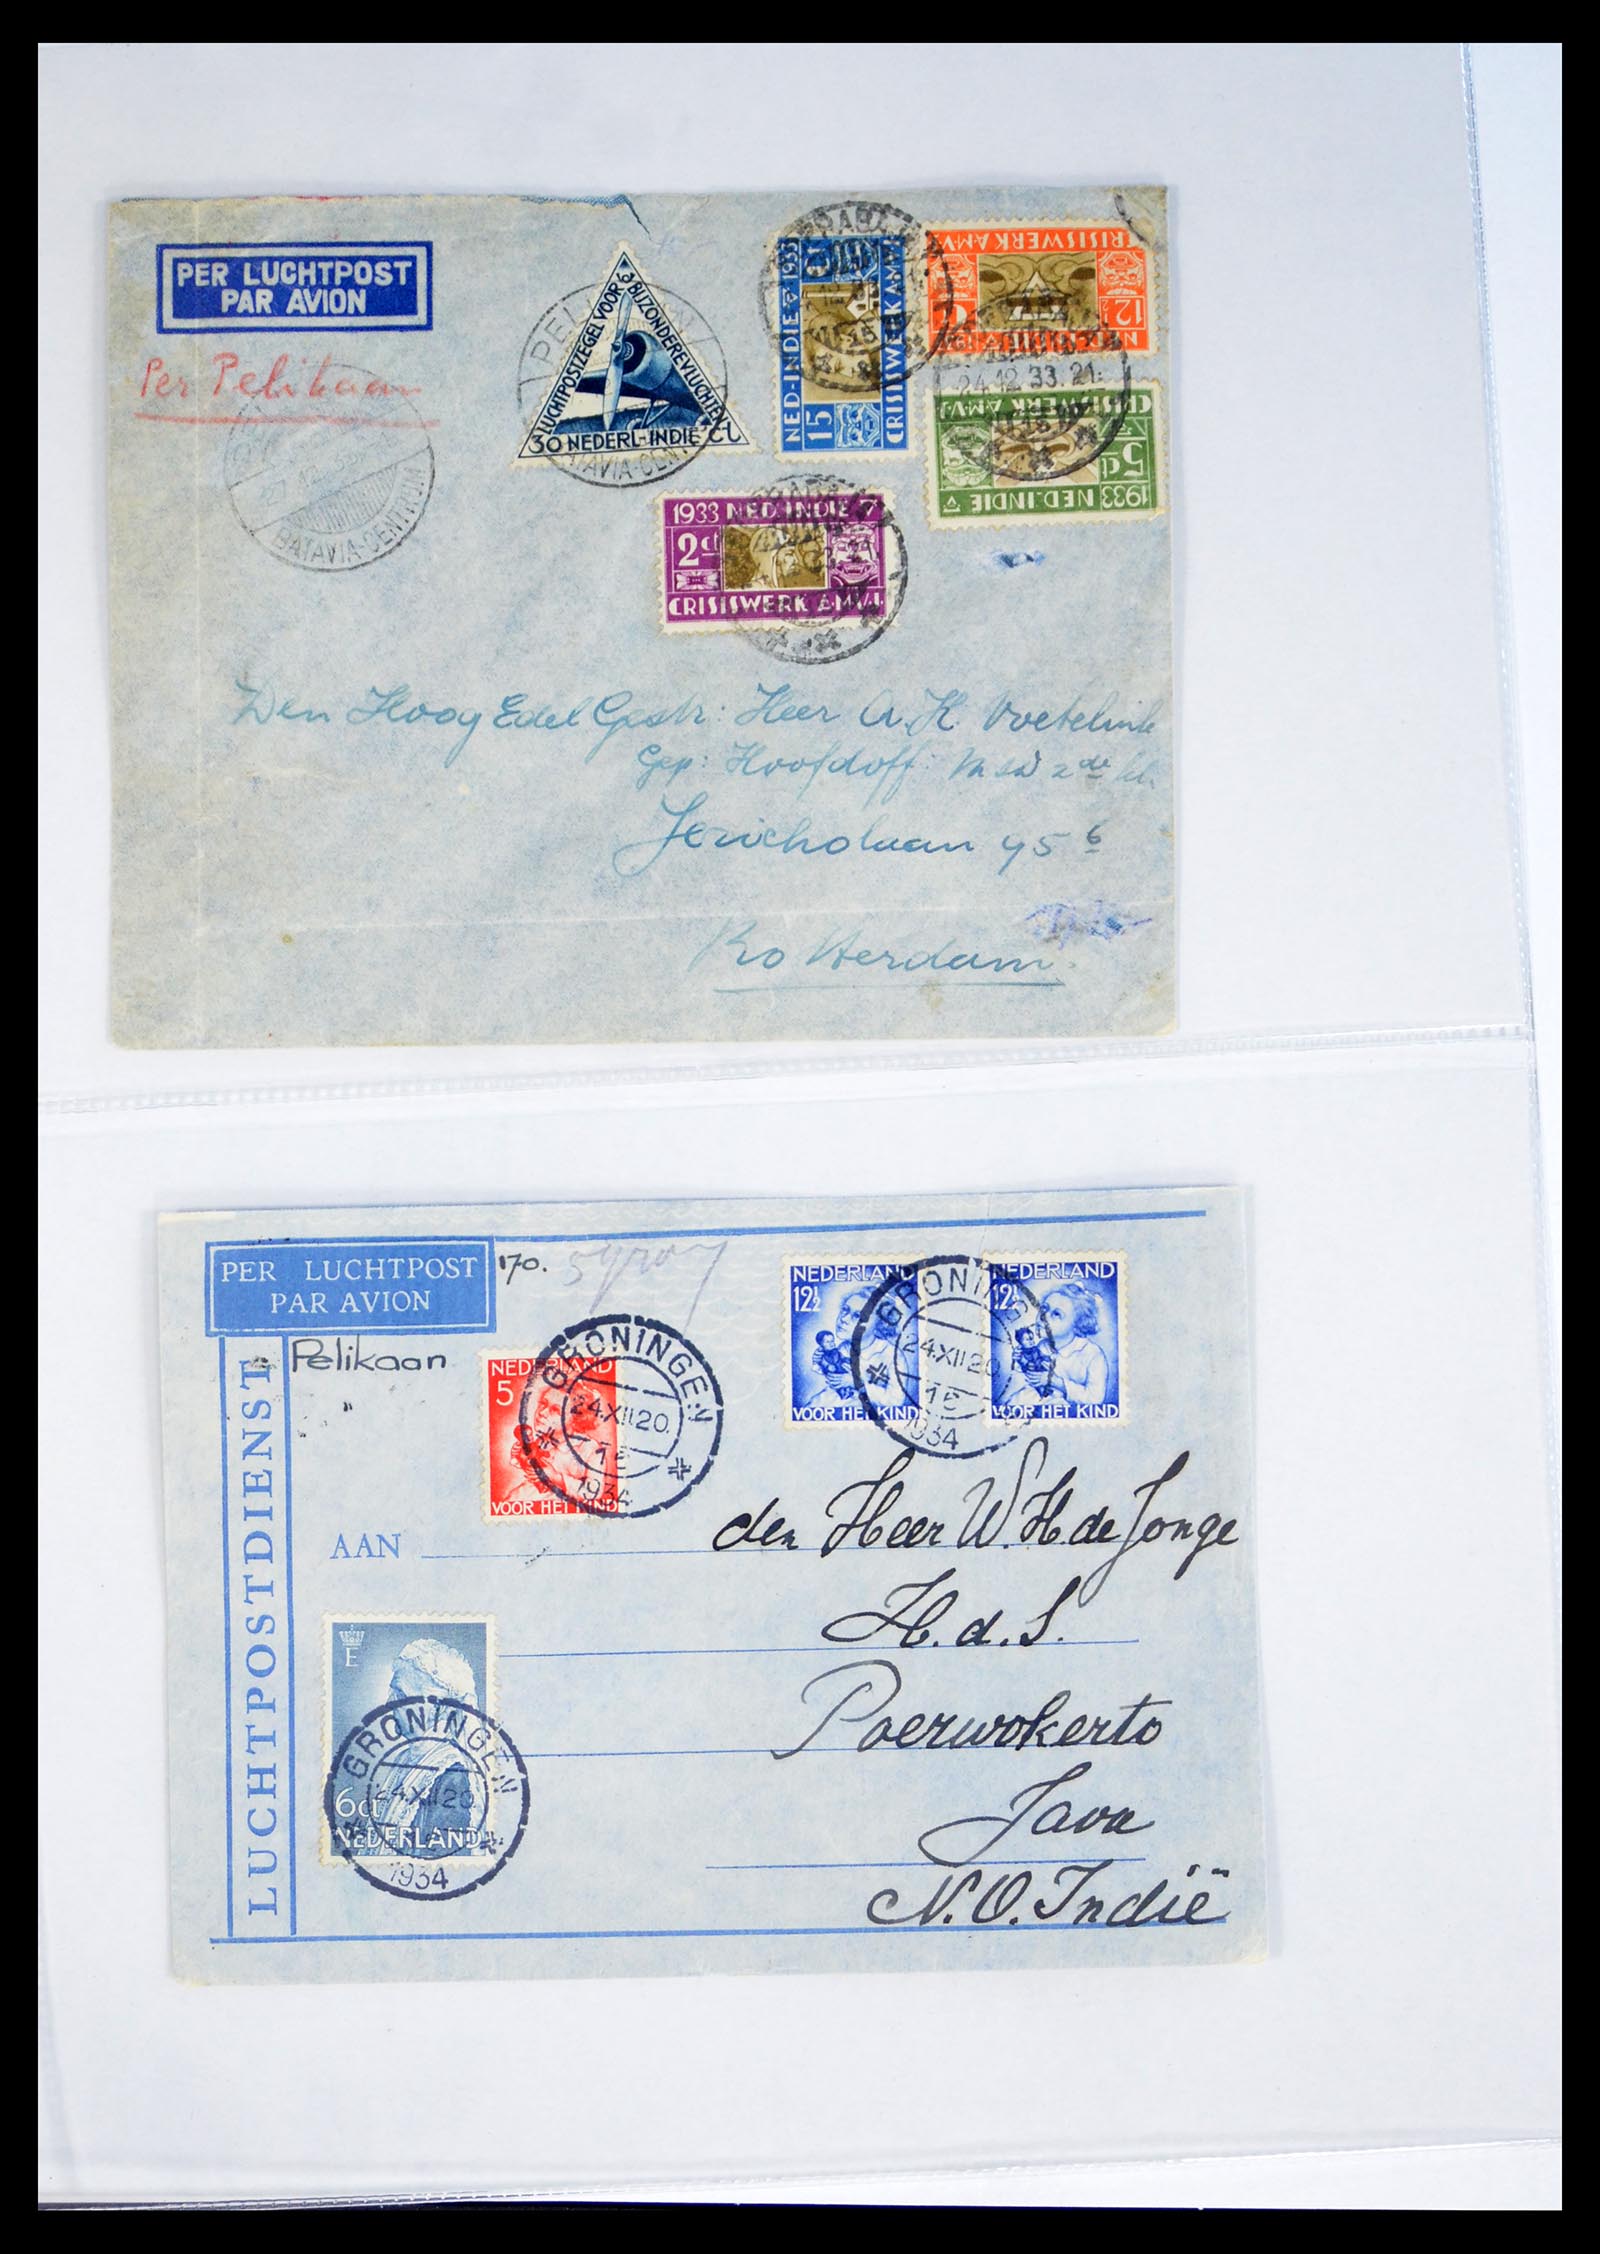 PER LUCHTPOST
PAR AVION
Per Pelikaan
LUCHTPOSTZEGEL VOOR BIJZONDERE VLUCHTEN
30 NEDERL-INDIE CT
PELIKAAN
BATAVIA-CENTRUM
NED-INDIE 1933
15 Ct
CRISISWERK A.M.V.J.
CRISISWERK A.M.V.J.
12½
24.12.33.21
CRISISWERK A.M.V.J.
5 ct
1933 NED.INDIE
27.12.33
BATAVIA-CENTRUM
1933 NED.INDIE
2 ct
CRISISWERK A.M.V.J.
Den Hoog Edel Gestr: Heer A. K. Voetelink
Gep: Hoofdoff: 2de kl.
Jericholaan 95 b
Rotterdam.
PER LUCHTPOST
PAR AVION
170.
Pelikaan
LUCHTPOSTDIENST
NEDERLAND
12½
VOOR HET KIND
NEDERLAND
12½
VOOR HET KIND
GRONINGEN
24.XII 20.
1934
NEDERLAND
5
VOOR HET KIND
GRONINGEN
24.XII 20.
1934
AAN
den Heer W. H. de Jonge
H. d. S.
Poerwokerto
Java
N. O. Indië
E
6 ct
NEDERLAND
GRONINGEN
24.XII 20
1934